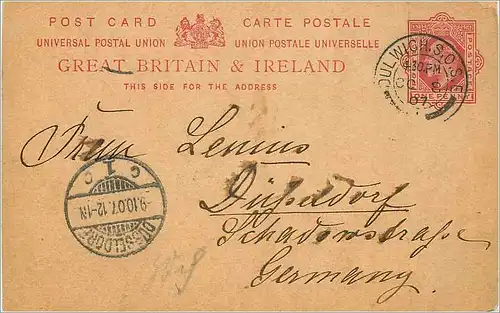 POST CARD CARTE POSTALE
UNIVERSAL POSTAL UNION UNION POSTALE UNIVERSELLE
GREAT BRITAIN & IRELAND
THIS SIDE FOR THE ADDRESS
DULWICH.S.O.S.E
4.30PM
OC 8
07
ONE PENNY
POSTAGE
Lenius
Düsseldorf
Schadowstraße
Germany.
DÜSSELDORF
1
C C
-9.10.07.12-1N